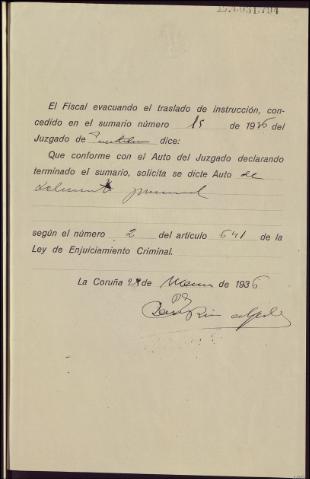 El Fiscal evacuando el traslado de instrucción, con-
cedido en el sumario número 15 de 1936 del
Juzgado de dice:
Que conforme con el Auto del Juzgado declarando
terminado el sumario, solicita se dicte Auto de
según el número 2 del artículo 641 de la
Ley de Enjuiciamiento Criminal.
La Coruña de Marzo de 1936